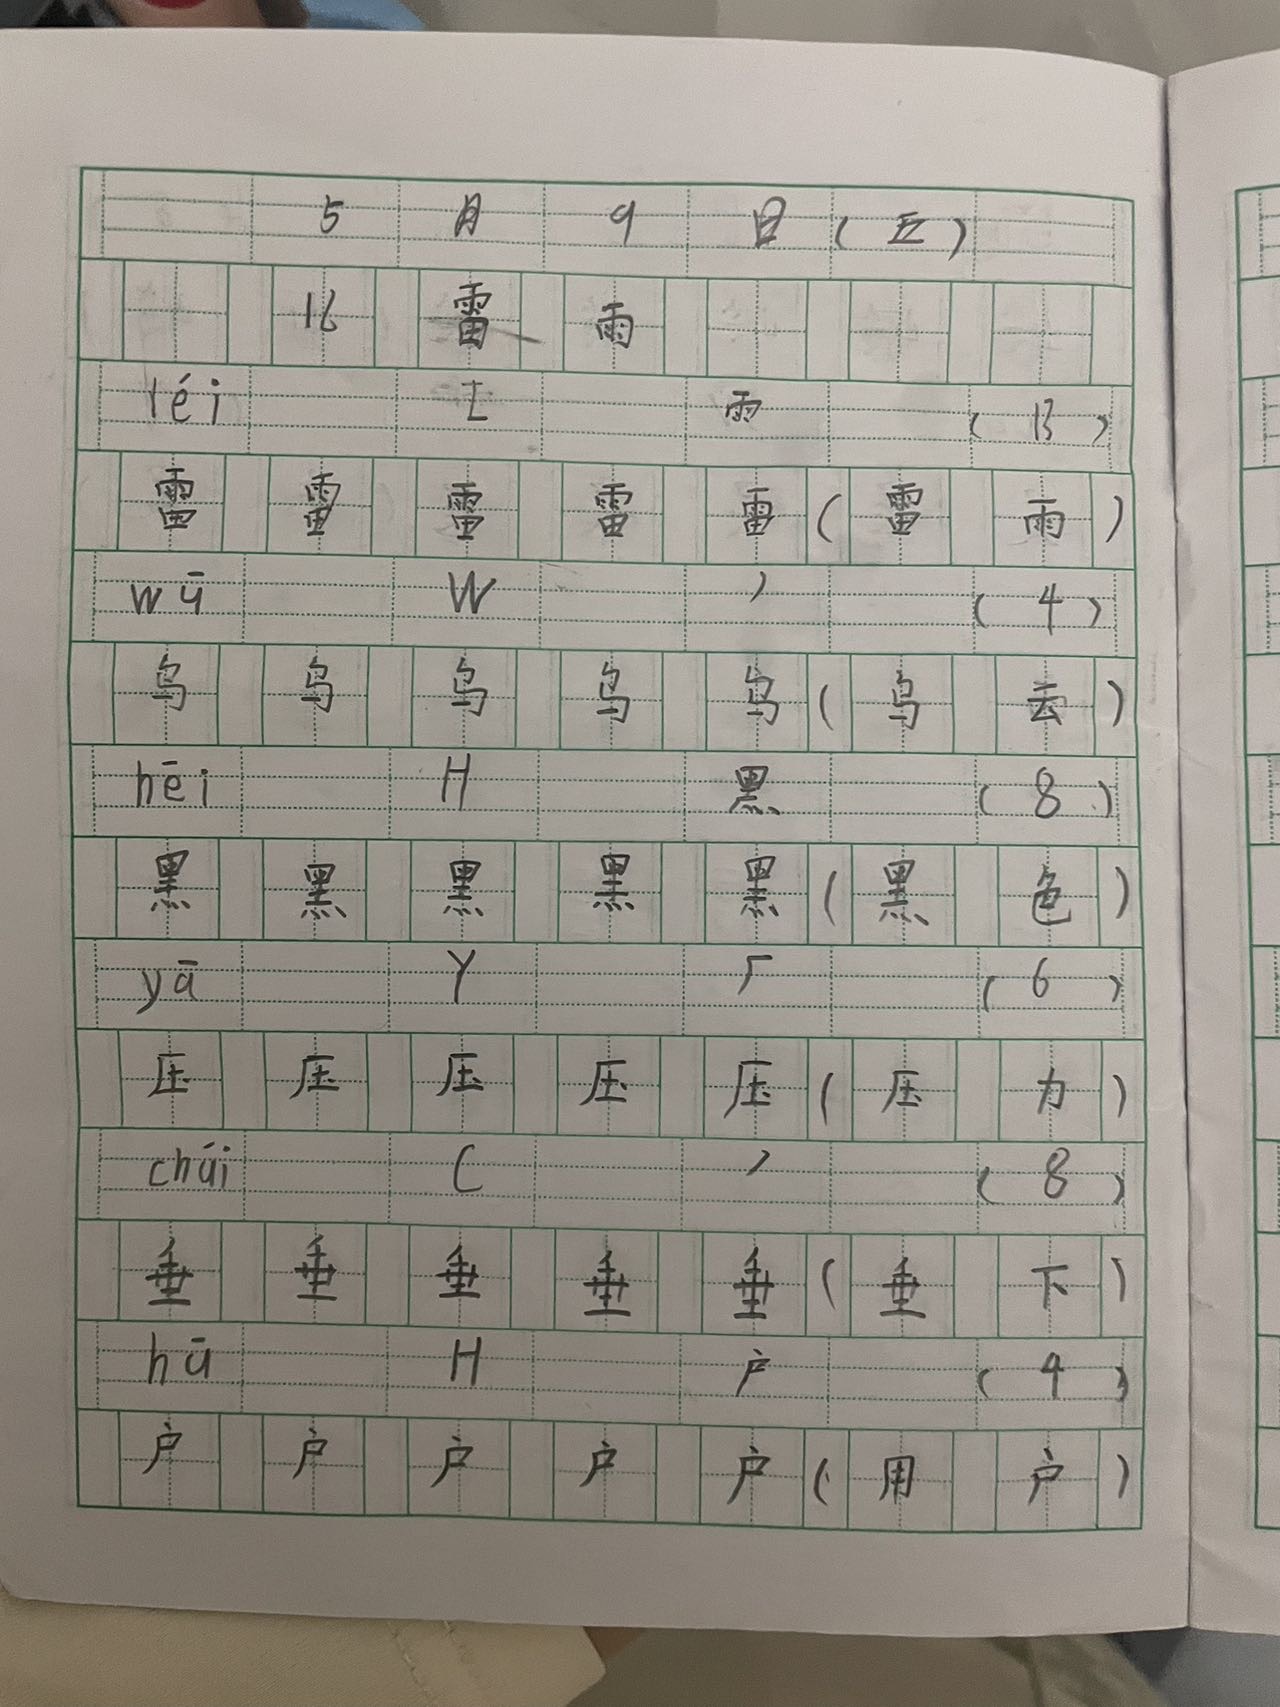 5 月 9 日 ( 五 )
16 雷 雨
léi L 雨 ( 13 )
雷 雷 雷 雷 雷 ( 雷 雨 )
wū W ノ ( 4 )
乌 乌 乌 乌 乌 ( 乌 云 )
hēi H 黑 ( 8 )
黑 黑 黑 黑 黑 ( 黑 色 )
yā Y 厂 ( 6 )
压 压 压 压 压 ( 压 力 )
chúi C ノ ( 8 )
垂 垂 垂 垂 垂 ( 垂 下 )
hū H 户 ( 4 )
户 户 户 户 户 ( 用 户 )